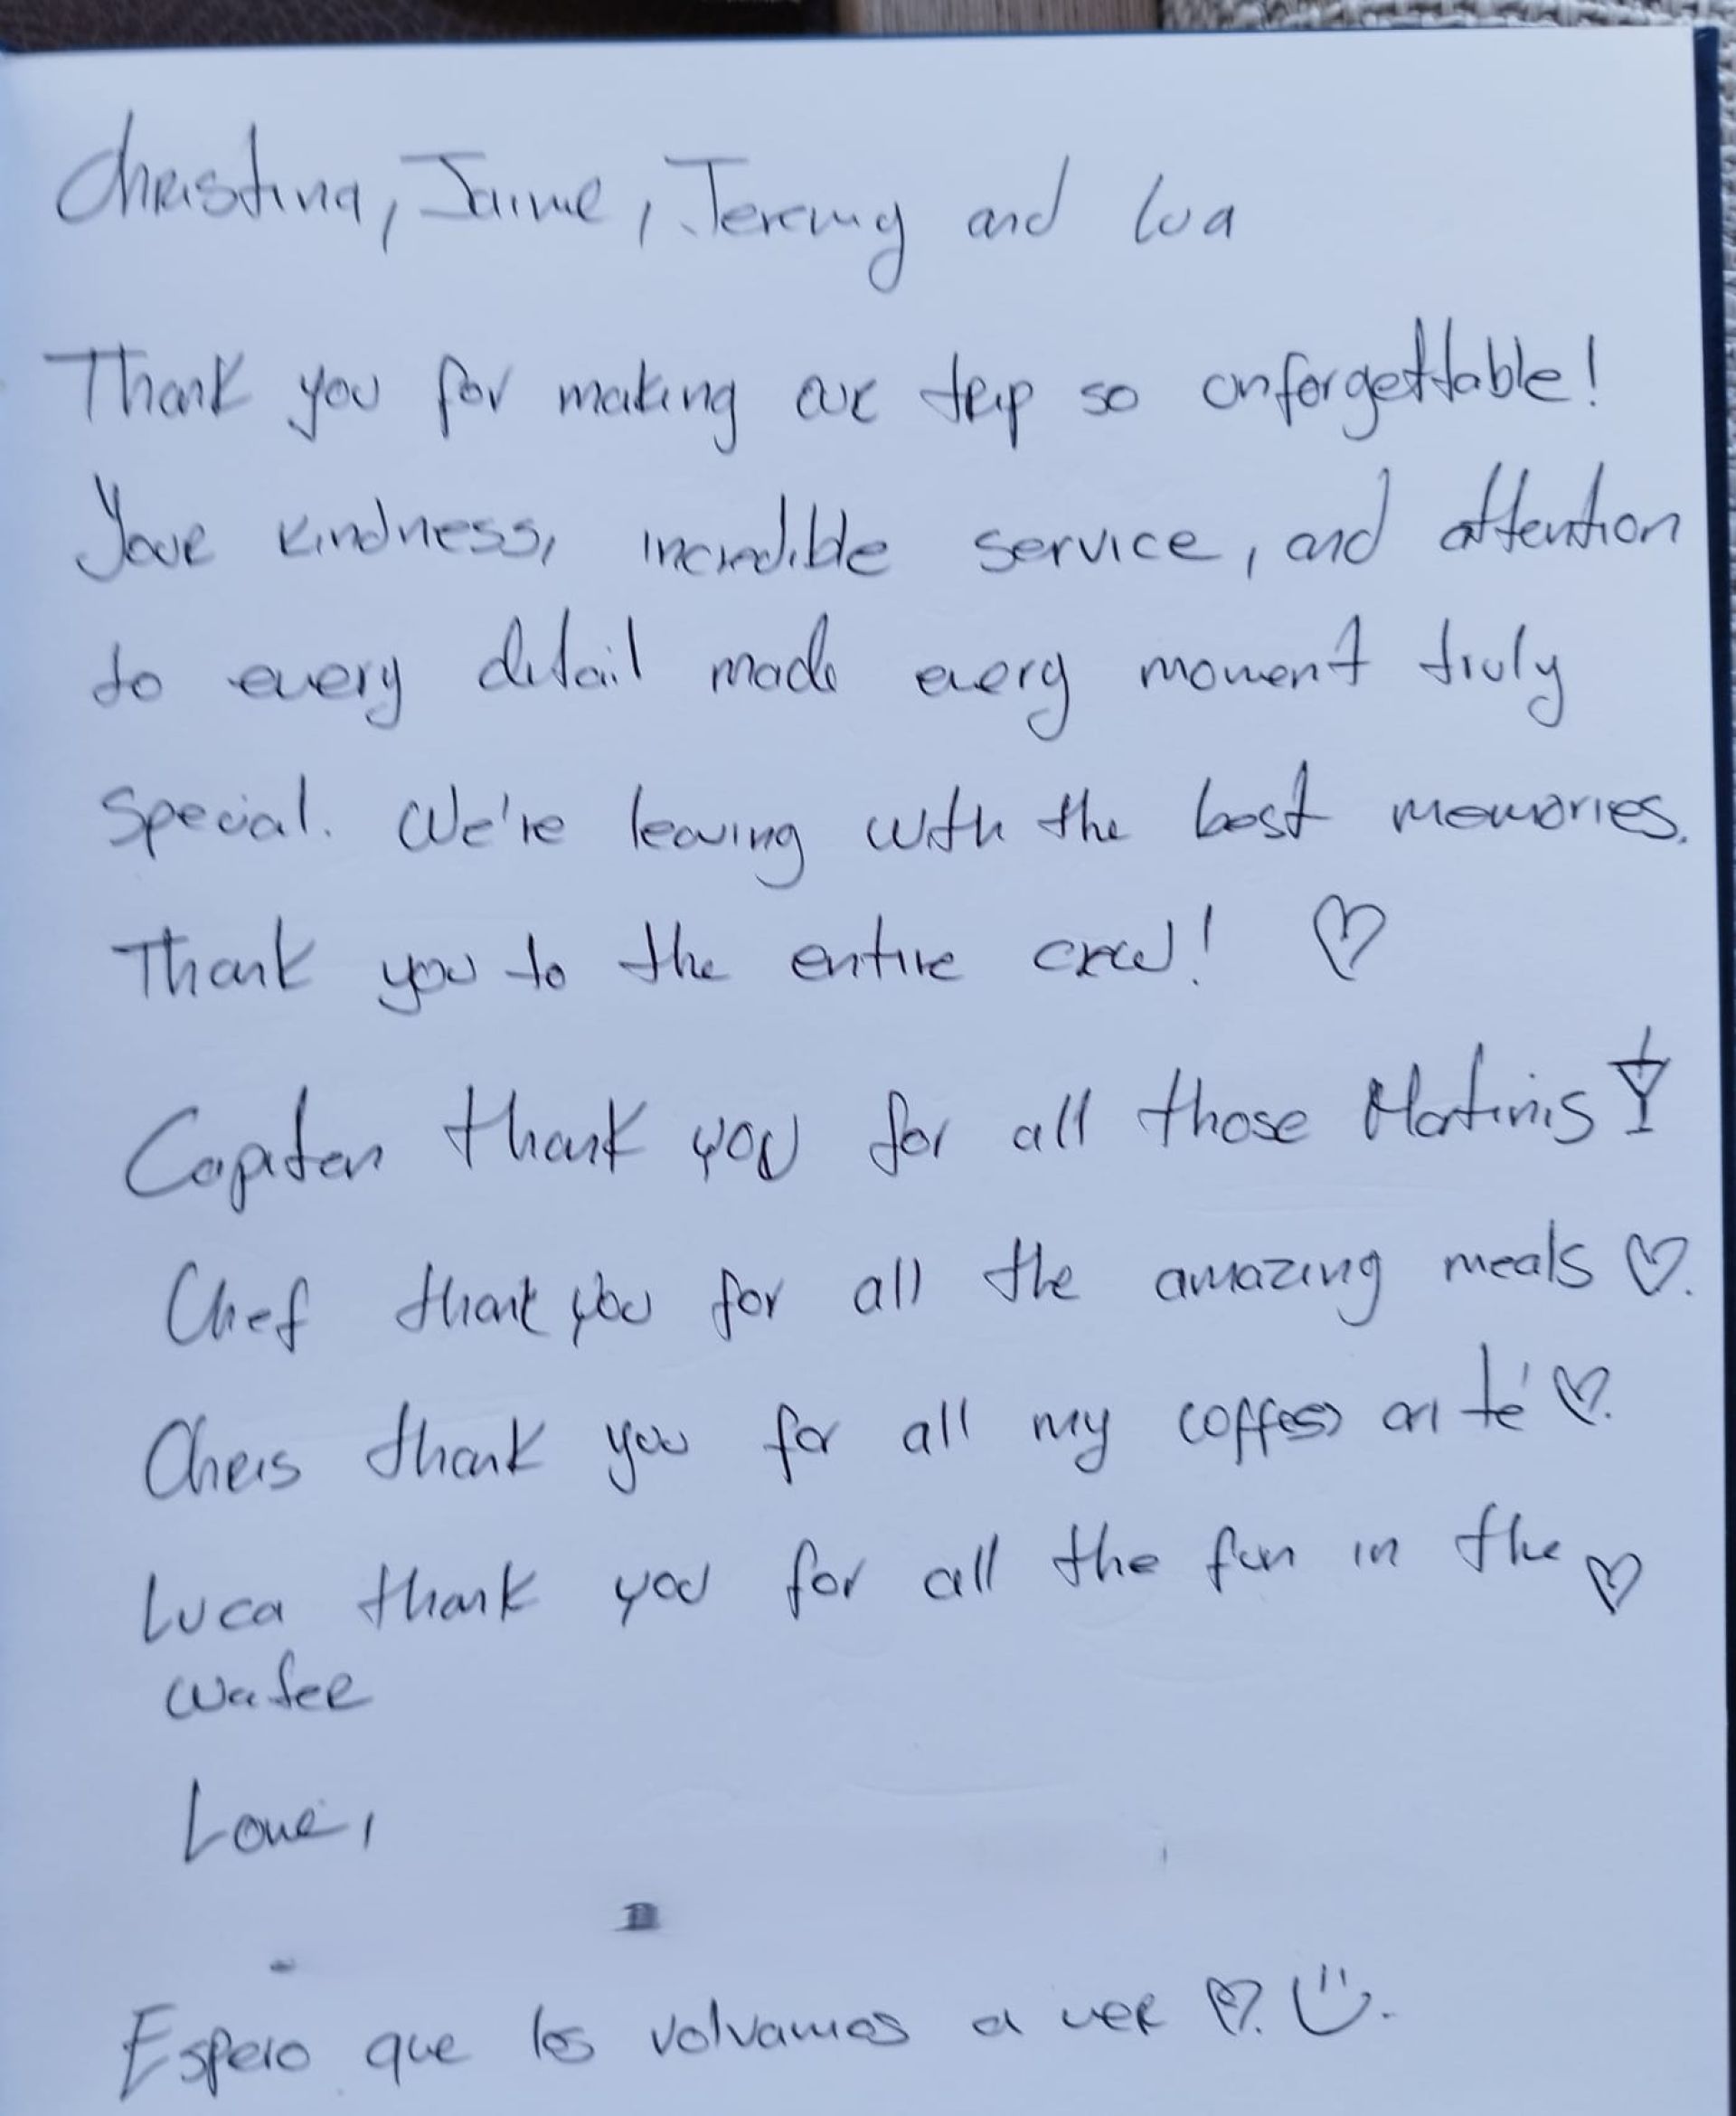 Christina, Jaime, Jeremy and Lua
Thank you for making our trip so unforgettable!
Your kindness, incredible service, and attention
to every detail made every moment truly
special. We're leaving with the best memories.
Thank you to the entire crew! ♡
Capiten thank you for all those Martinis
Chef thank you for all the amazing meals ♡.
Chris thank you for all my coffess té ♡.
Luca thank you for all the fun in the ♡
water
Love,
Espero que los volvamos a ver ♡. ☺.